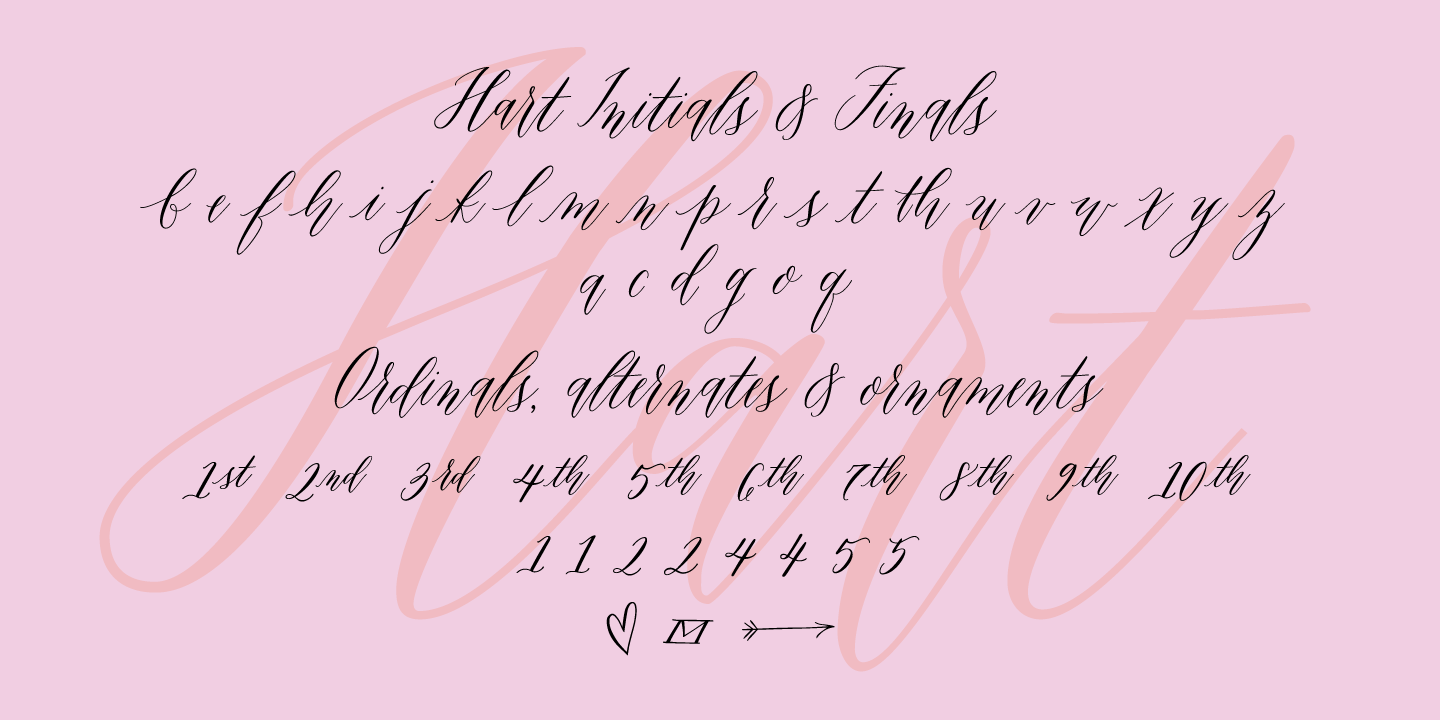 Hart
Hart Initials & Finals
b e f h i j k l m n p r s t th u v w x y z
a c d g o q
Ordinals, alternates & ornaments
1st 2nd 3rd 4th 5th 6th 7th 8th 9th 10th
1 1 2 2 4 4 5 5